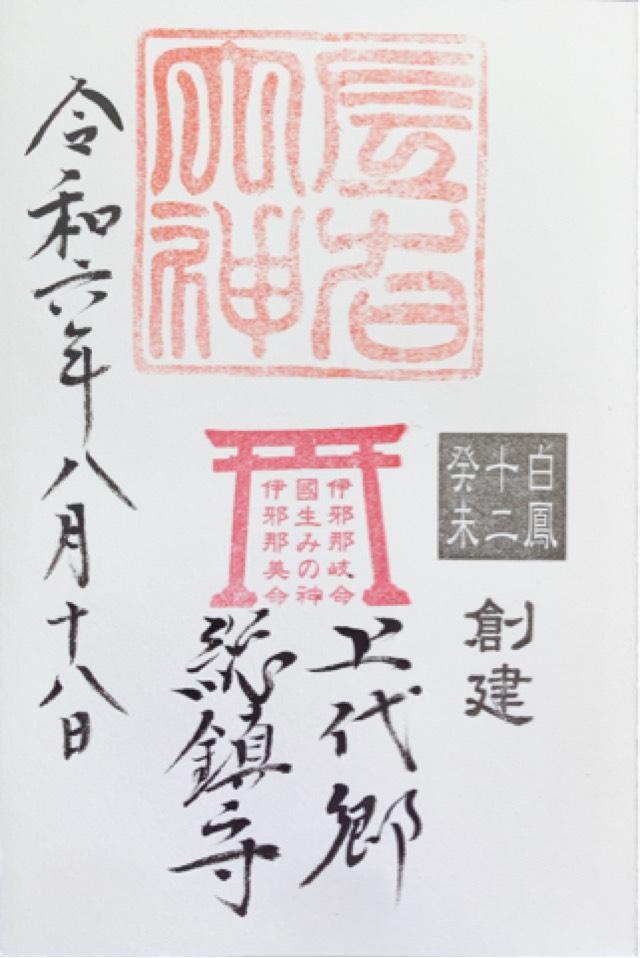 大神
白鳳
十二
癸未
創建
伊邪那岐命
國生みの神
伊邪那美命
上代郷
総鎮守
令和六年八月十八日